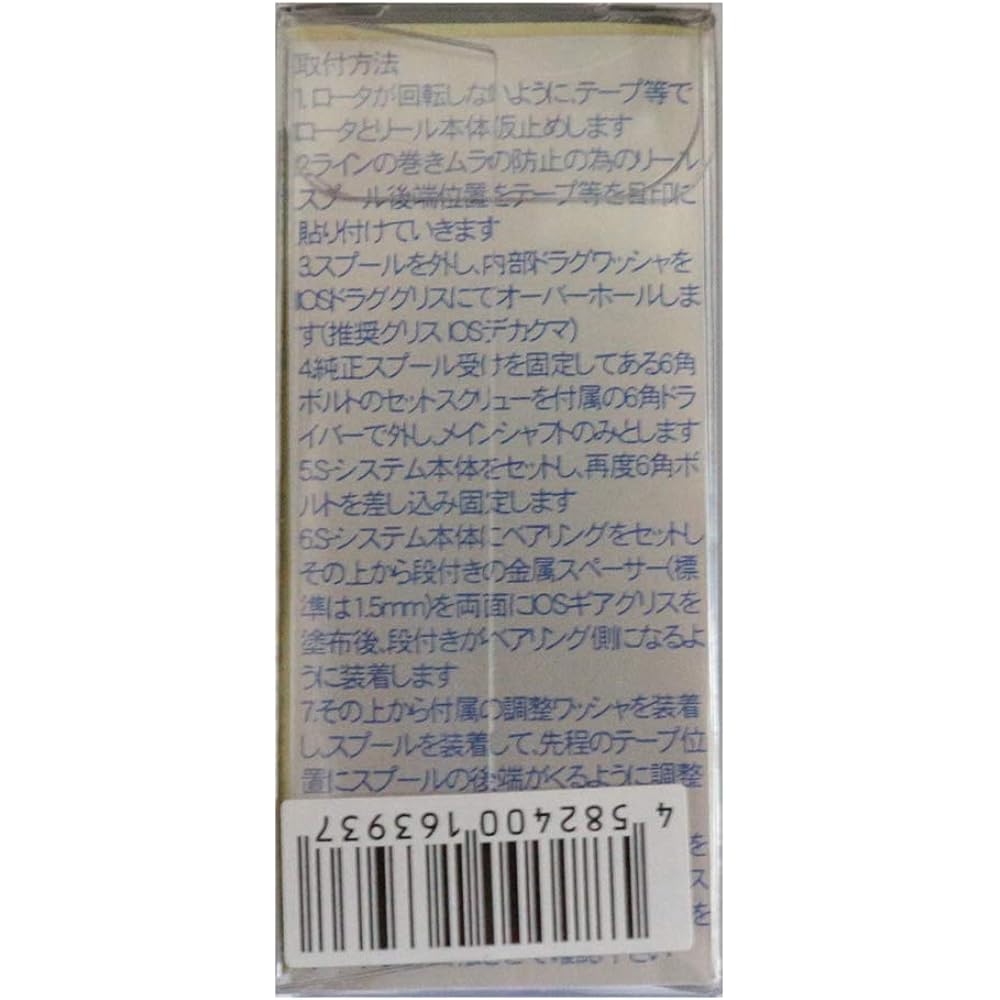 取付方法
1.ロータが回転しないように、テープ等で
ロータとリール本体仮止めします
2.ラインの巻きムラの防止の為のリール
スプール後端位置をテープ等を目印に
貼り付けていきます
3.スプールを外し、内部ドラグワッシャを
IOSドラググリスにてオーバーホールしま
す(推奨グリス IOSデカクマ)
4.純正スプール受けを固定してある6角
ボルトのセットスクリューを付属の6角ドラ
イバーで外し、メインシャフトのみとします
5.S-システム本体をセットし、再度6角ボ
ルトを差し込み固定します
6.S-システム本体にベアリングをセットし
その上から段付きの金属スペーサー(標
準は1.5mm)を両面にIOSギアグリスを
塗布後、段付きがベアリング側になるよ
うに装着します
7.その上から付属の調整ワッシャを装着
し、スプールを装着して、先程のテープ位
置にスプールの後端がくるように調整
4 582400 163937
を
ス
を